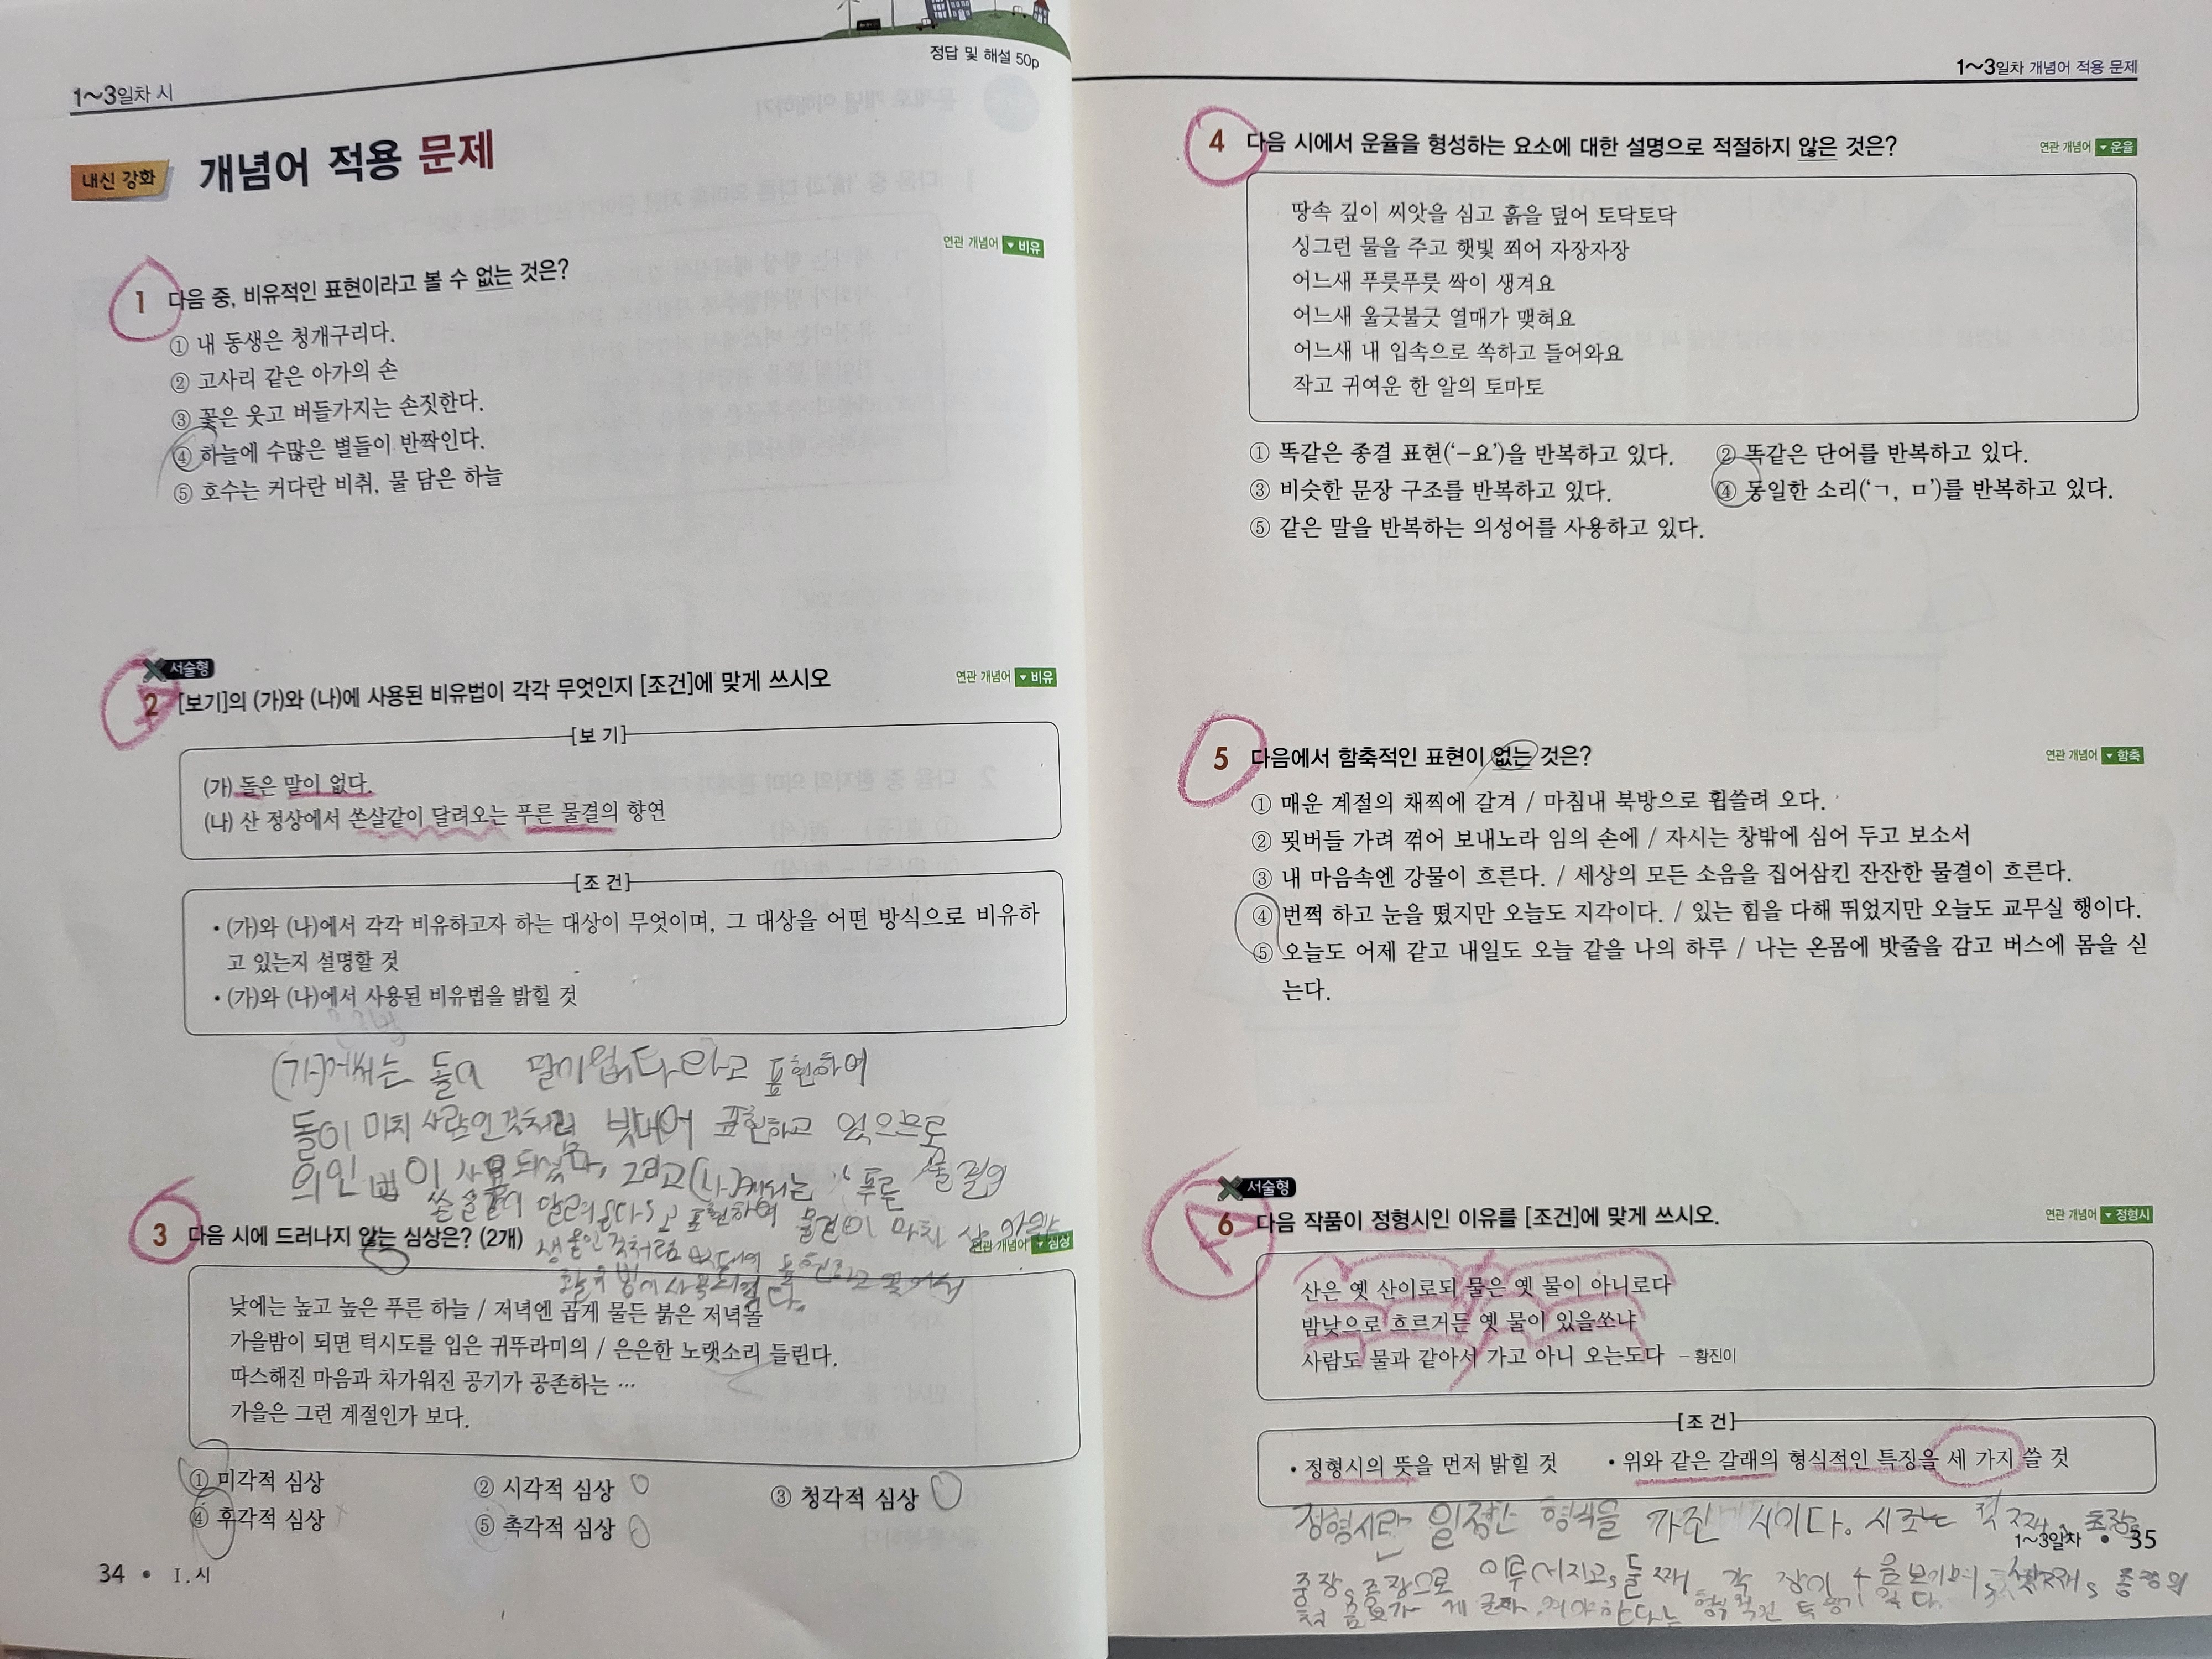 정답 및 해설 50p
1~3일차 시
내신 강화 개념어 적용 문제
연관 개념어 ▼비유
1 다음 중, 비유적인 표현이라고 볼 수 없는 것은?
① 내 동생은 청개구리다.
② 고사리 같은 아가의 손
③ 꽃은 웃고 버들가지는 손짓한다.
④ 하늘에 수많은 별들이 반짝인다.
⑤ 호수는 커다란 비취, 물 담은 하늘
서술형
2 [보기]의 (가)와 (나)에 사용된 비유법이 각각 무엇인지 [조건]에 맞게 쓰시오
연관 개념어 ▼비유
[보 기]
(가) 돌은 말이 없다.
(나) 산 정상에서 쏜살같이 달려오는 푸른 물결의 향연
[조 건]
• (가)와 (나)에서 각각 비유하고자 하는 대상이 무엇이며, 그 대상을 어떤 방식으로 비유하
고 있는지 설명할 것
• (가)와 (나)에서 사용된 비유법을 밝힐 것
(가)에서는 돌이 말이없다라고 표현하여
돌이 마치 사람인것처럼 빗대어 표현하고 있으므로
의인법이 사용되었다, 그리고 (나)에서는 푸른 물결의
표현하여 물결이 마치
생물인것처럼 빗대어 표현하고 있어서
활유법이 사용되었다.
3 다음 시에 드러나지 않는 심상은? (2개)
연관 개념어 ▼심상
낮에는 높고 높은 푸른 하늘 / 저녁엔 곱게 물든 붉은 저녁놀
가을밤이 되면 턱시도를 입은 귀뚜라미의 / 은은한 노랫소리 들린다.
따스해진 마음과 차가워진 공기가 공존하는 …
가을은 그런 계절인가 보다.
① 미각적 심상 ② 시각적 심상 ③ 청각적 심상
④ 후각적 심상 ⑤ 촉각적 심상
34 • Ⅰ. 시
1~3일차 개념어 적용 문제
4 다음 시에서 운율을 형성하는 요소에 대한 설명으로 적절하지 않은 것은?
연관 개념어 ▼운율
땅속 깊이 씨앗을 심고 흙을 덮어 토닥토닥
싱그런 물을 주고 햇빛 쬐어 자장자장
어느새 푸릇푸릇 싹이 생겨요
어느새 울긋불긋 열매가 맺혀요
어느새 내 입속으로 쏙하고 들어와요
작고 귀여운 한 알의 토마토
① 똑같은 종결 표현('-요')을 반복하고 있다. ② 똑같은 단어를 반복하고 있다.
③ 비슷한 문장 구조를 반복하고 있다. ④ 동일한 소리('ㄱ, ㅁ')를 반복하고 있다.
⑤ 같은 말을 반복하는 의성어를 사용하고 있다.
5 다음에서 함축적인 표현이 없는 것은?
연관 개념어 ▼함축
① 매운 계절의 채찍에 갈겨 / 마침내 북방으로 휩쓸려 오다.
② 묏버들 가려 꺾어 보내노라 임의 손에 / 자시는 창밖에 심어 두고 보소서
③ 내 마음속엔 강물이 흐른다. / 세상의 모든 소음을 집어삼킨 잔잔한 물결이 흐른다.
④ 번쩍 하고 눈을 떴지만 오늘도 지각이다. / 있는 힘을 다해 뛰었지만 오늘도 교무실 행이다.
⑤ 오늘도 어제 같고 내일도 오늘 같을 나의 하루 / 나는 온몸에 밧줄을 감고 버스에 몸을 싣
는다.
서술형
6 다음 작품이 정형시인 이유를 [조건]에 맞게 쓰시오.
연관 개념어 ▼정형시
산은 옛 산이로되 물은 옛 물이 아니로다
밤낮으로 흐르거든 옛 물이 있을쏘냐
사람도 물과 같아서 가고 아니 오는도다 - 황진이
[조 건]
• 정형시의 뜻을 먼저 밝힐 것 • 위와 같은 갈래의 형식적인 특징을 세 가지 쓸 것
정형시란 일정한 형식을 가진 시이다. 시조는 첫째, 초장,
중장, 종장으로 이루어지고, 둘째, 각 장이 4음보이며, 셋째, 종장의
첫 음보가 세 글자여야 한다는 형식적인 특징이 있다.
1~3일차 • 35